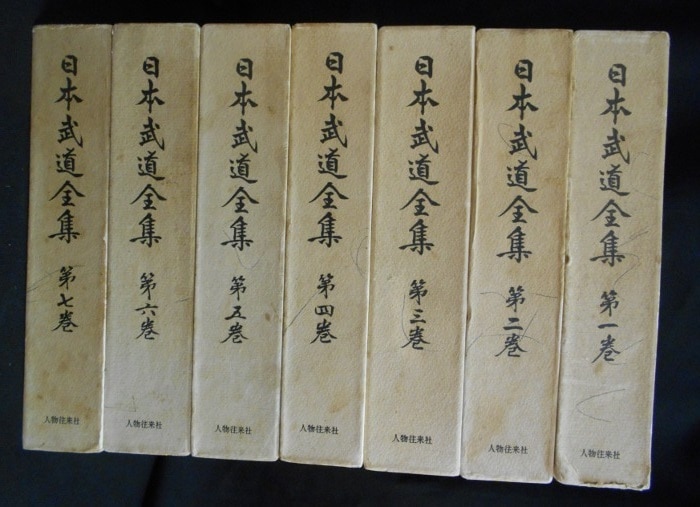 日本武道全集 第一巻
人物往来社
日本武道全集 第二巻
人物往来社
日本武道全集 第三巻
人物往来社
日本武道全集 第四巻
人物往来社
日本武道全集 第五巻
人物往来社
日本武道全集 第六巻
人物往来社
日本武道全集 第七巻
人物往来社